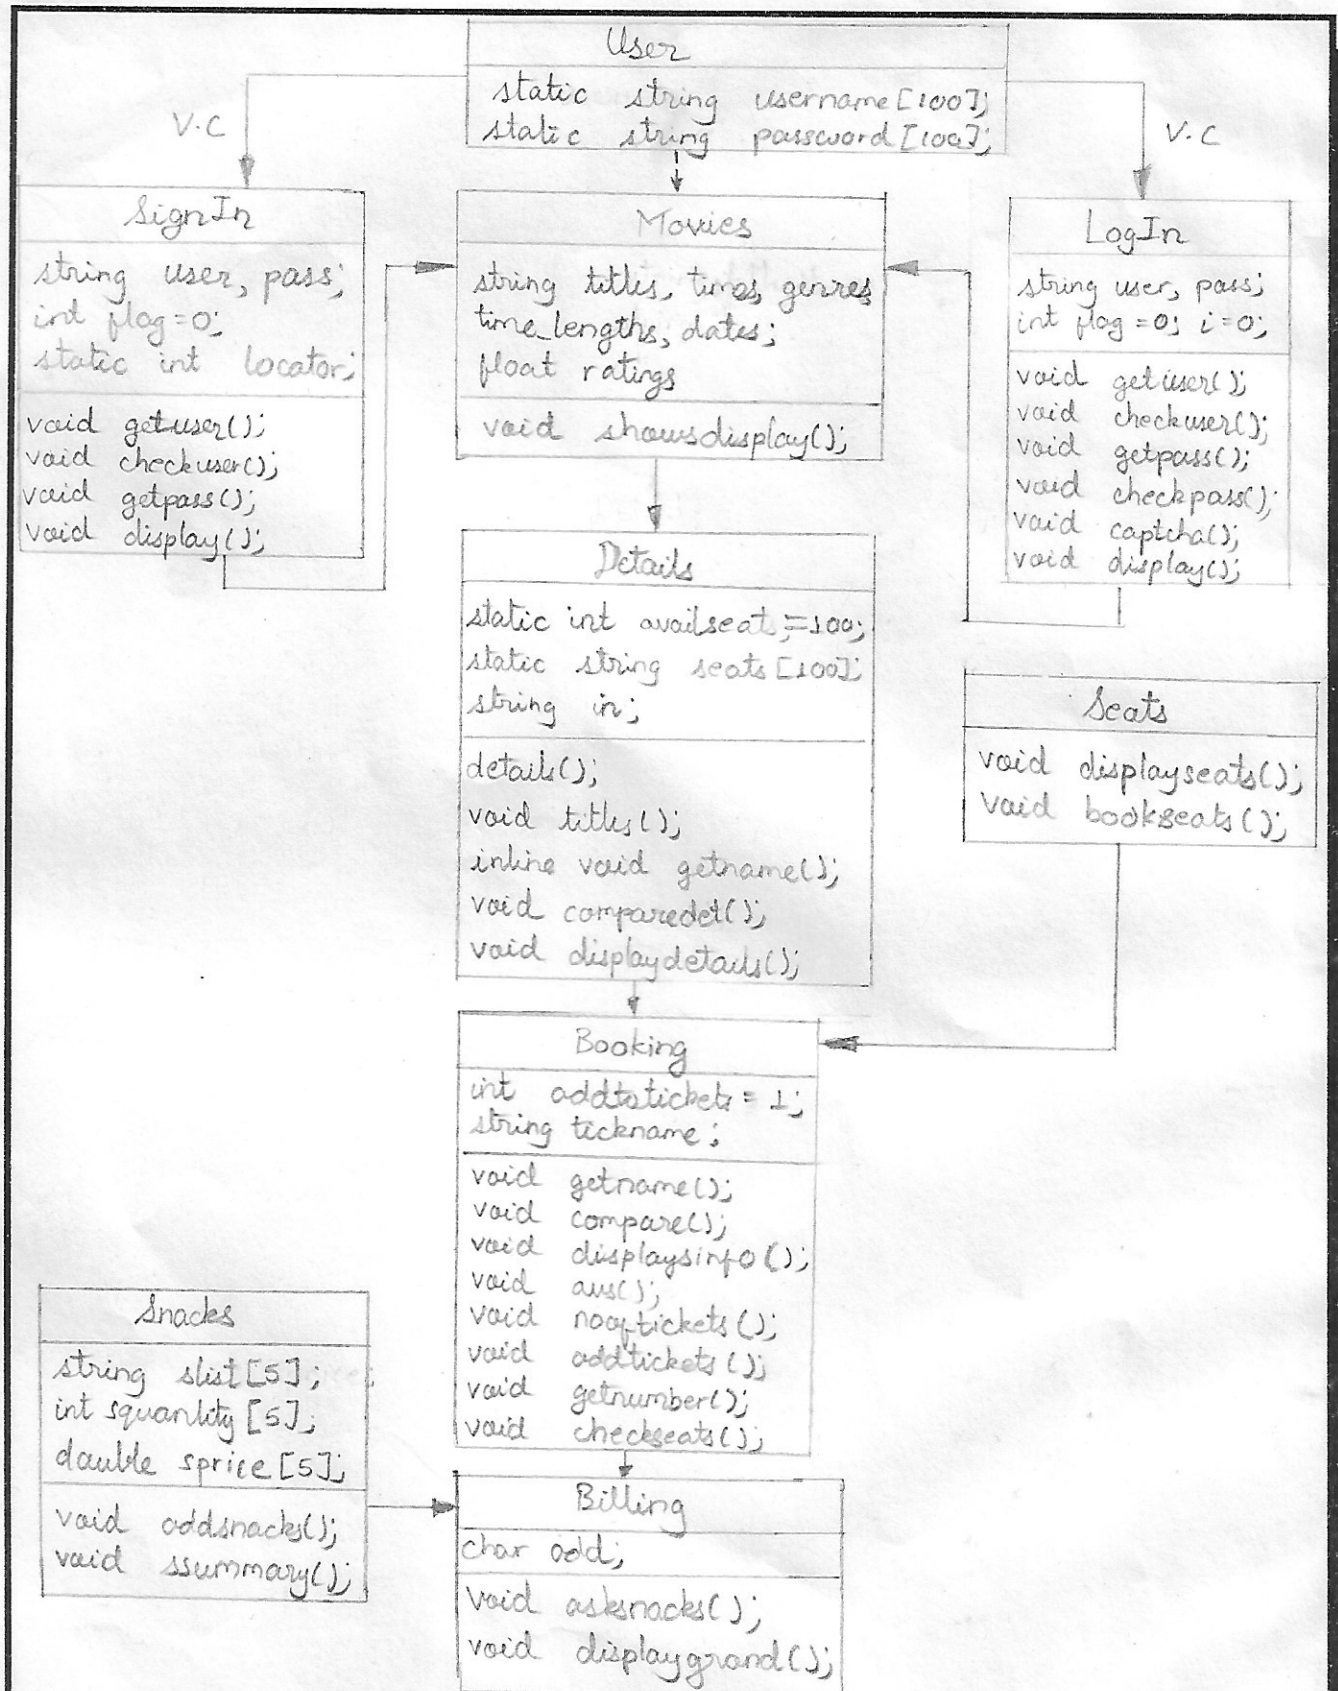 User
static string username[100];
static string password[100];
V.C
V.C
SignIn
string user, pass;
int flag=0;
static int locator;
void getuser();
void checkuser();
void getpass();
void display();
Movies
string titles, times, genres
time_lengths, dates;
float ratings
void showsdisplay();
LogIn
string user, pass;
int flag=0; i=0;
void getuser();
void checkuser();
void getpass();
void checkpass();
void captcha();
void display();
Details
static int availseats;=100;
static string seats[100];
string in;
details();
void titles();
inline void getname();
void comparedet();
void displaydetails();
Seats
void displayseats();
void bookseats();
Booking
int addtotickets = 1;
string tickname;
void getname();
void compare();
void displaysinfo();
void
void nooftickets();
void addtickets();
void getnumber();
void checkseats();
Snacks
string slist[5];
int squantity[5];
double sprice[5];
void addsnacks();
void ssummary();
Billing
char add;
void asksnacks();
void displaygrand();